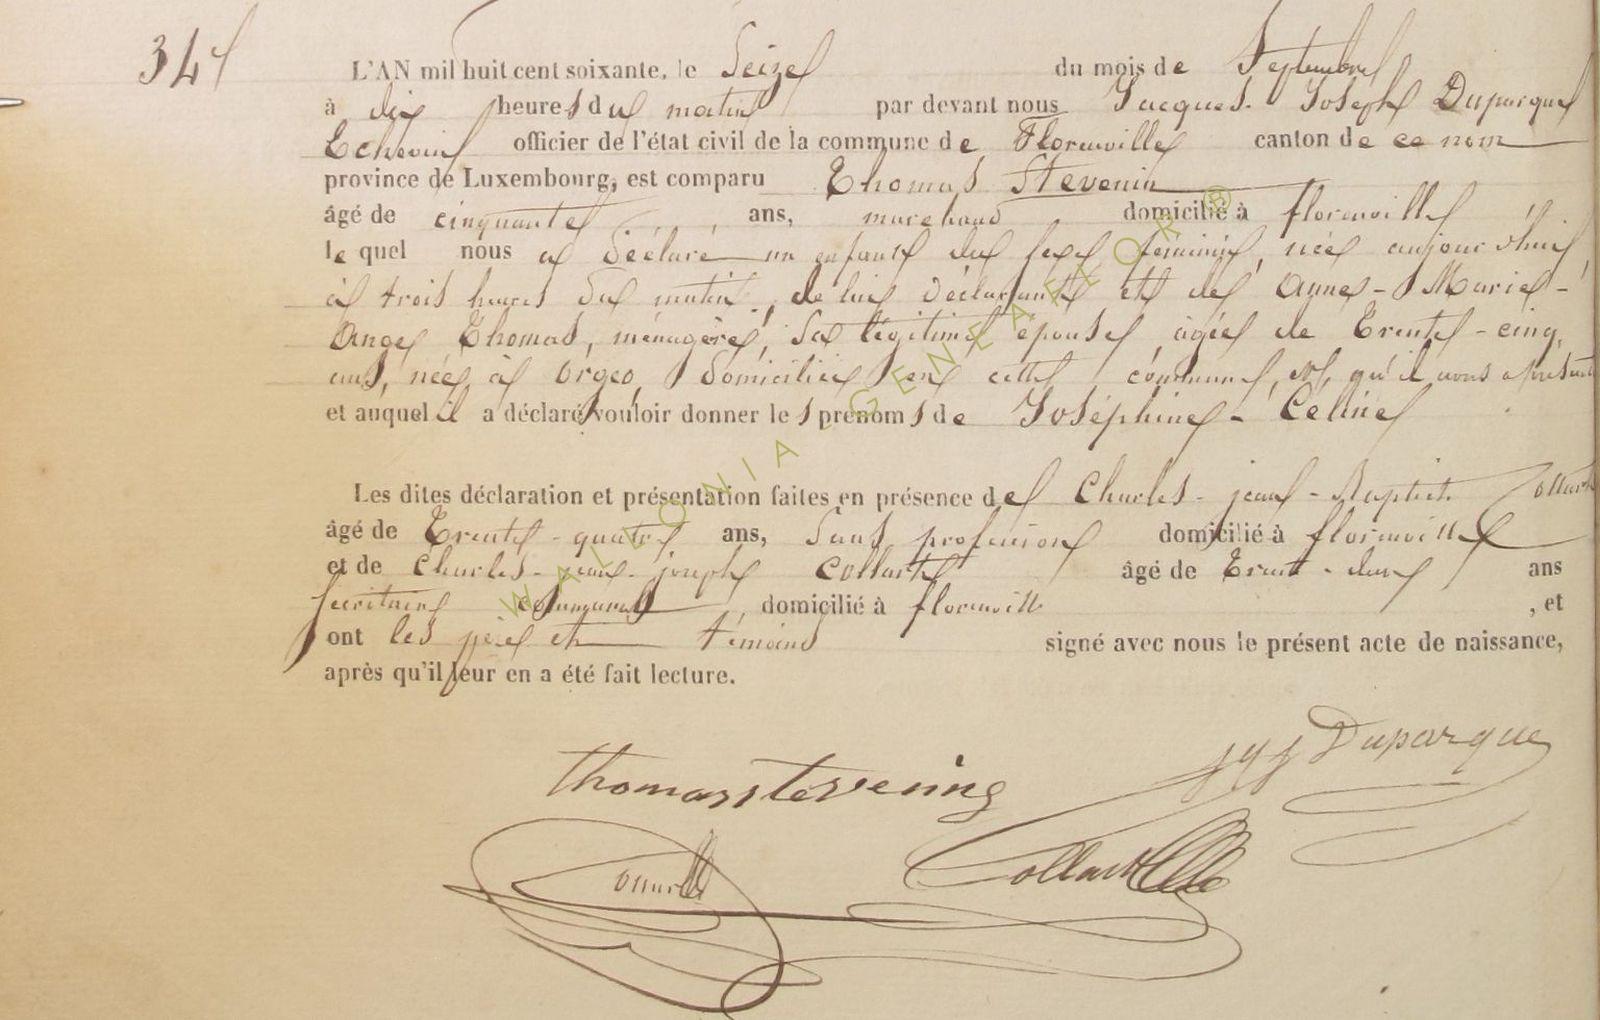 34
L'AN mil huit cent soixante, le Seize du mois de Septembre
à dix heures du matin par devant nous Jacques-Joseph Duparque
Echevin officier de l'état civil de la commune de Florenville canton de ce nom
province de Luxembourg, est comparu Thomas Stevenin
âgé de cinquante ans, marchand domicilié à florenville
lequel nous a déclaré un enfant du sexe féminin, née aujourd'hui,
à trois heures du matin, de lui déclarant et de Anne-Marie-
Ange Thomas, ménagère, sa légitime épouse, âgée de Trente-cinq
ans, née à Orgeo, domiciliée en cette commune, et qu'il nous a présenté
et auquel il a déclaré vouloir donner les prénoms de Joséphine-Céline
Les dites déclaration et présentation faites en présence de Charles-jean-Baptiste Collart
âgé de Trente-quatre ans, sans profession domicilié à florenville
et de Charles-jean-joseph Collart âgé de Trente-deux ans
secrétaire communal domicilié à florenville, et
ont les père et témoins signé avec nous le présent acte de naissance,
après qu'il leur en a été fait lecture.
JJ Duparque
thomasstevening
Collart
Collart
WALLONIA - GENEAFLOR ®